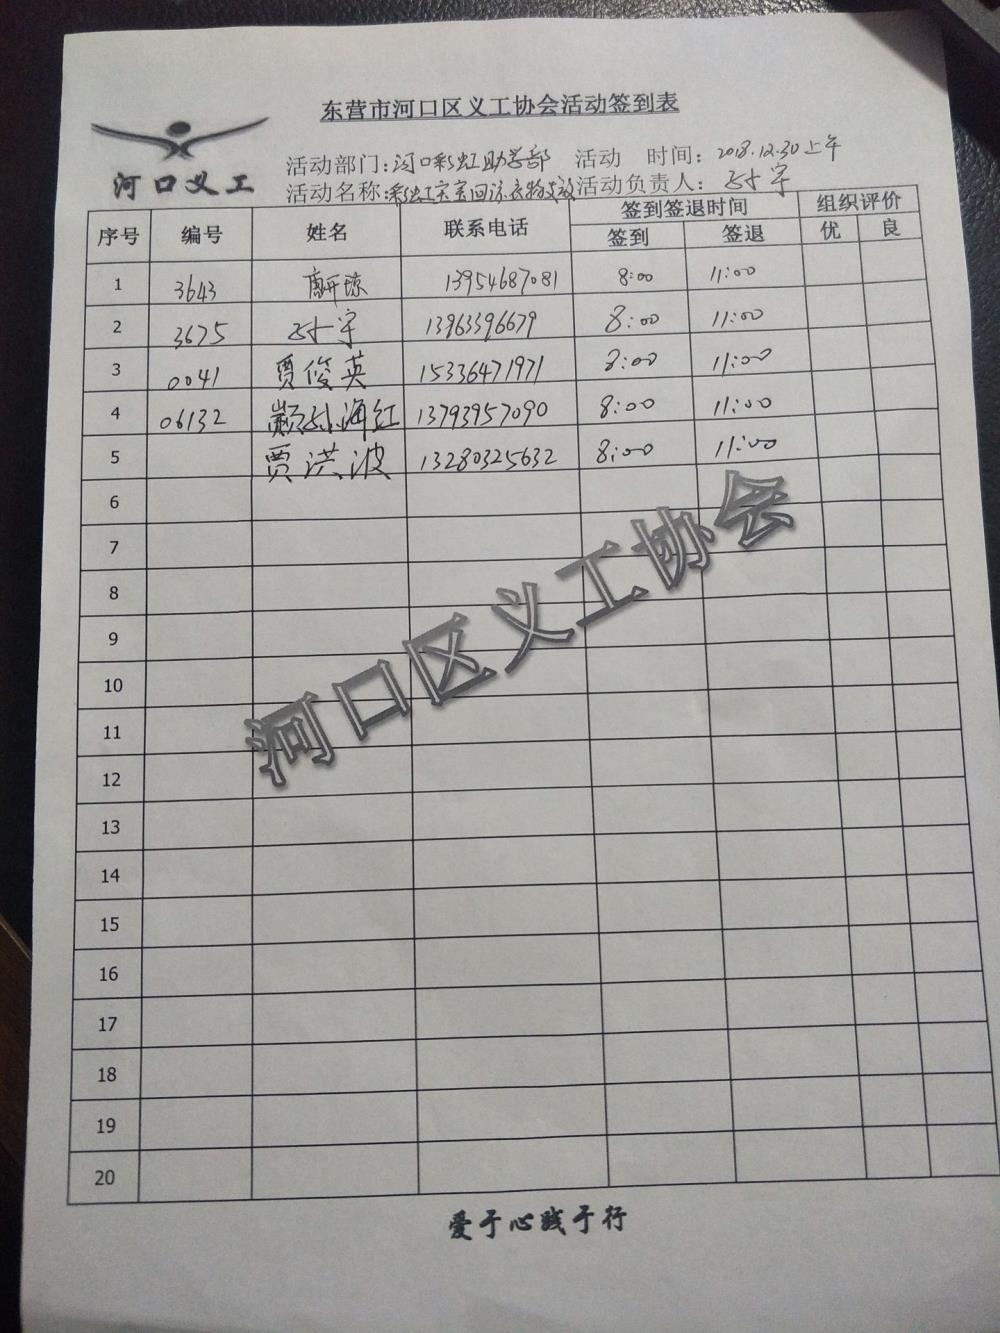 东营市河口区义工协会活动签到表
河口义工
活动部门：河口彩虹助学部 活动 时间：2018.12.30上午
活动名称：彩虹 回 衣物 放 活动负责人：
序号 编号 姓名 联系电话 签到签退时间 组织评价
签到 签退 优 良
1 3643 13954687081 8:00 11:00
2 3675 13963396679 8:00 11:00
3 0041 贾俊英 15336471971 8:00 11:00
4 06132 颛孙海红 13793957090 8:00 11:00
5 贾洪波 13280325632 8:00 11:00
6
7
8
9
10
11
12
13
14
15
16
17
18
19
20
河口区义工协会
爱于心践于行